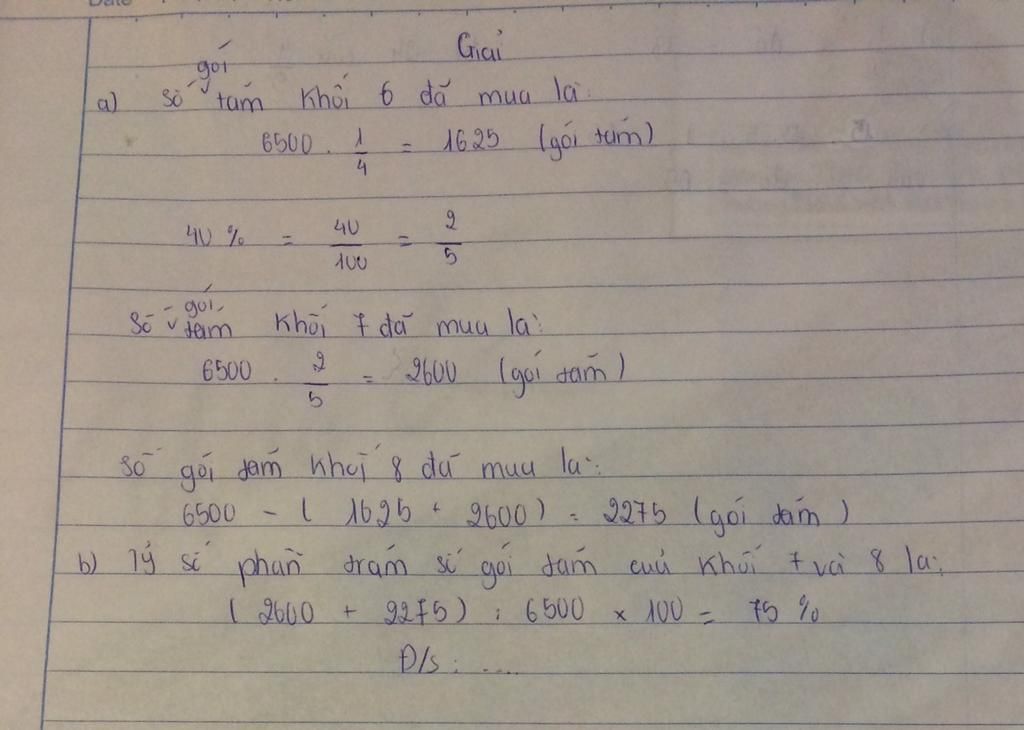 Date
Giải
a) Số gói tăm khối 6 đã mua là:
6500 . 1/4 = 1625 (gói tăm)
40 % = 40/100 = 2/5
Số gói tăm khối 7 đã mua là:
6500 . 2/5 = 2600 (gói tăm)
Số gói tăm khối 8 đã mua là:
6500 - ( 1625 + 2600) = 2275 (gói tăm)
b) Tỷ số phần trăm số gói tăm của khối 7 và 8 là:
( 2600 + 2275) : 6500 × 100 = 75 %
Đ/s : ....